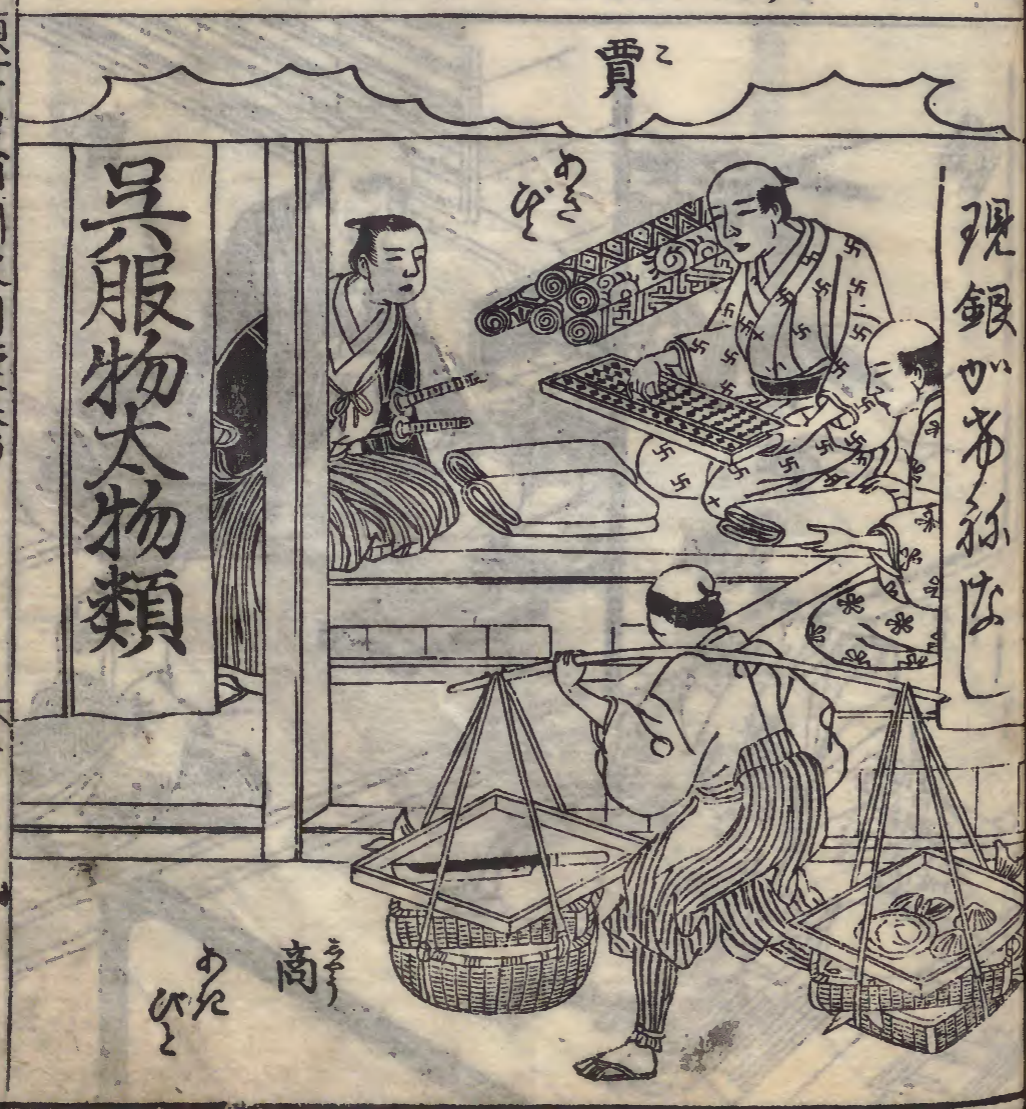 賈
こ
現銀かけねなし
あき
びと
呉服物太物類
商
しやう
あき
びと